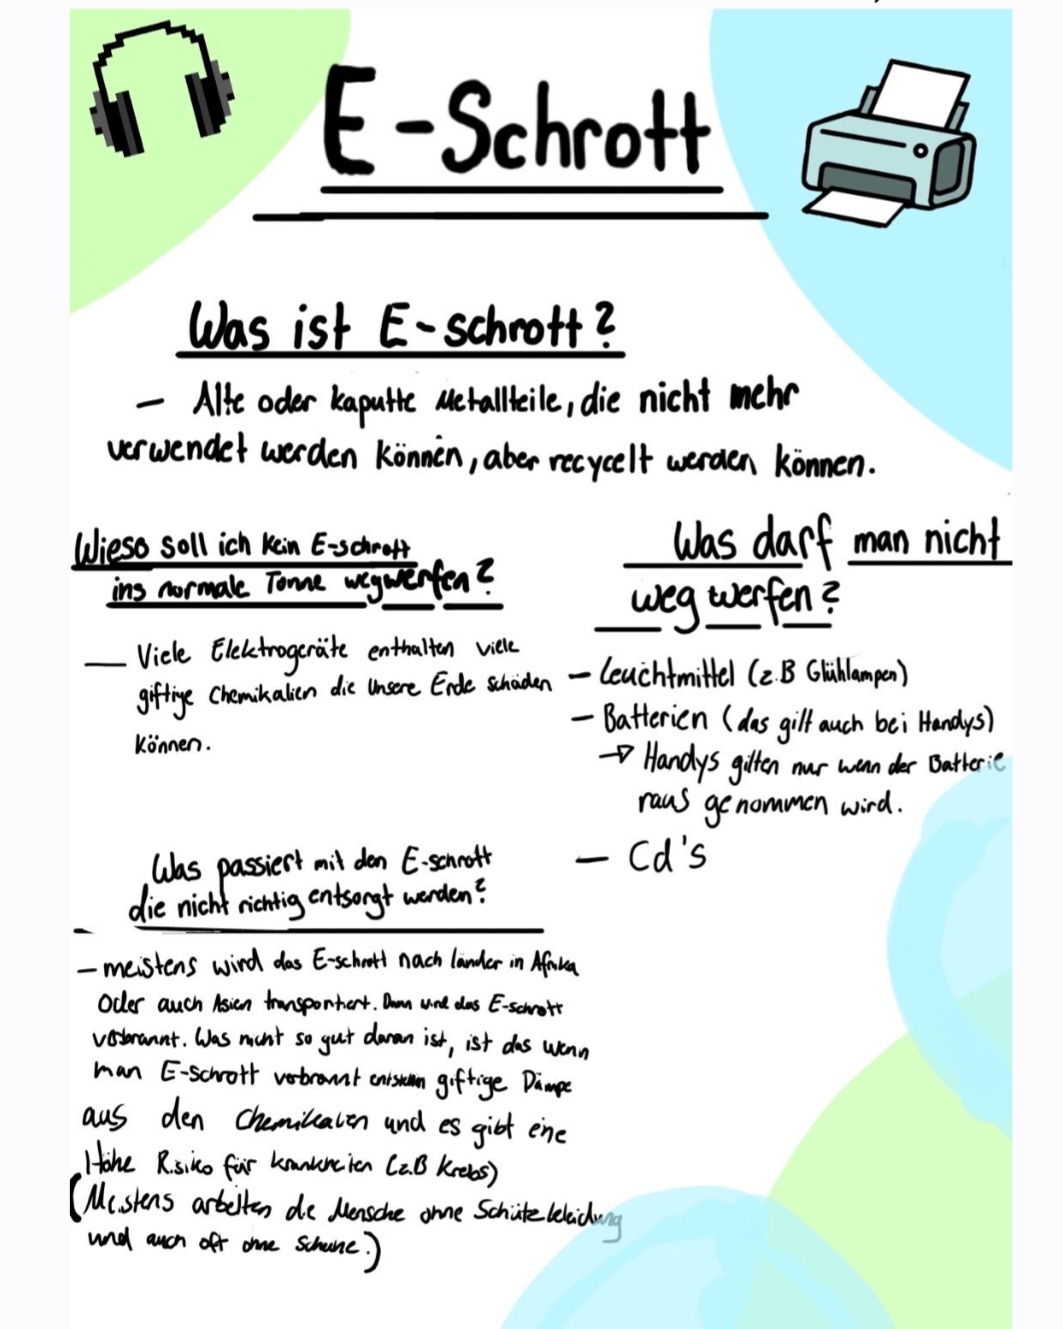 E-Schrott
Was ist E-schrott?
- Alte oder kaputte Metallteile, die nicht mehr
verwendet werden können, aber recycelt werden können.
Wieso soll ich kein E-schrott
ins normale Tonne wegwerfen?
- Viele Elektrogeräte enthalten viele
giftige Chemikalien die Unsere Erde schäden
können.
Was darf man nicht
weg werfen?
- Leuchtmittel (z.B Glühlampen)
- Batterien (das gilt auch bei Handys)
→ Handys gilten nur wenn der Batterie
raus genommen wird.
- Cd's
Was passiert mit den E-schrott
die nicht richtig entsorgt werden?
- meistens wird das E-schrott nach länder in Afrika
Oder auch Asien transportiert. Dann wird das E-schrott
verbrannt. Was nicht so gut daran ist, ist das wenn
man E-Schrott verbrannt entstehen giftige Dämpe
aus den Chemikalien und es gibt eine
Hohe Risiko für krankheiten (z.B Krebs)
(Meistens arbeiten die Mensche ohne Schützkleidung
und auch oft ohne Schuhe.)